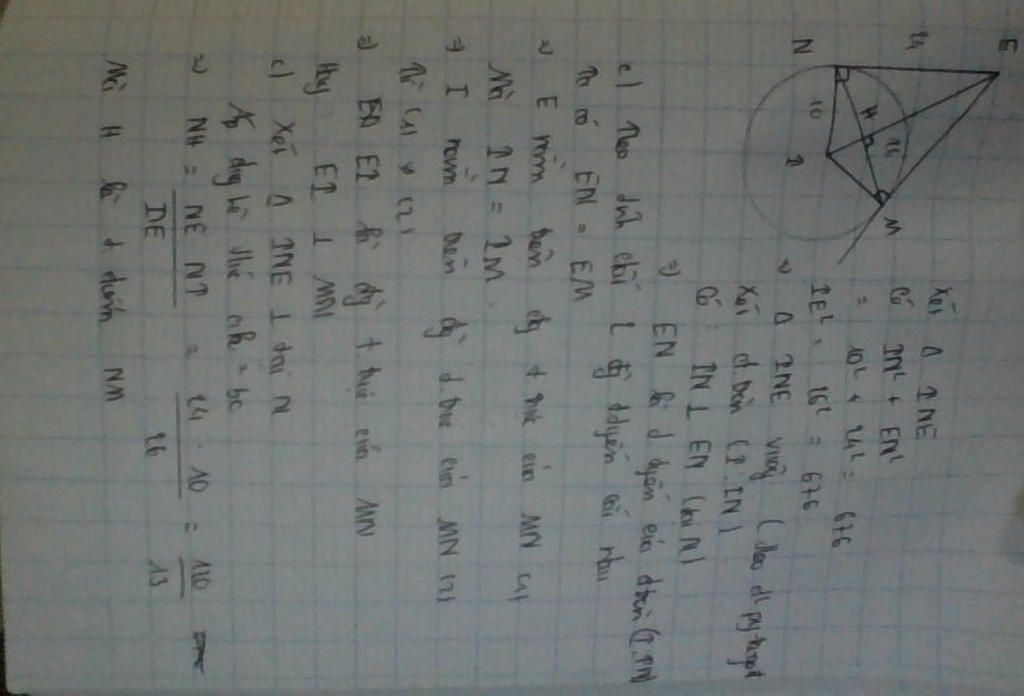 E
24
N
10
H
26
I
M
Xét Δ INE
Có IN² + EN²
= 10² + 24² = 676
IE² = 26² = 676
=> Δ INE vuông (theo đl pytago)
Xét đ tròn (I, IN)
Có: IN ⊥ EN (tại N)
=> EN là t tuyến của đ tròn (I, IN)
c) Theo t/c 2 t tuyến cắt nhau
Ta có EN = EM
=> E nằm trên đg t trực của MN (1)
Mà IN = IM
=> I nằm trên đg t trực của MN (2)
Từ (1) và (2)
=> EI là đg t trực của MN
Hay EI ⊥ MN
c) Xét Δ INE ⊥ tại N
Áp dụng hệ thức ah = bc
=> NH = NE NI / IE = 24 . 10 / 26 = 120 / 13
Mà H là t điểm NM